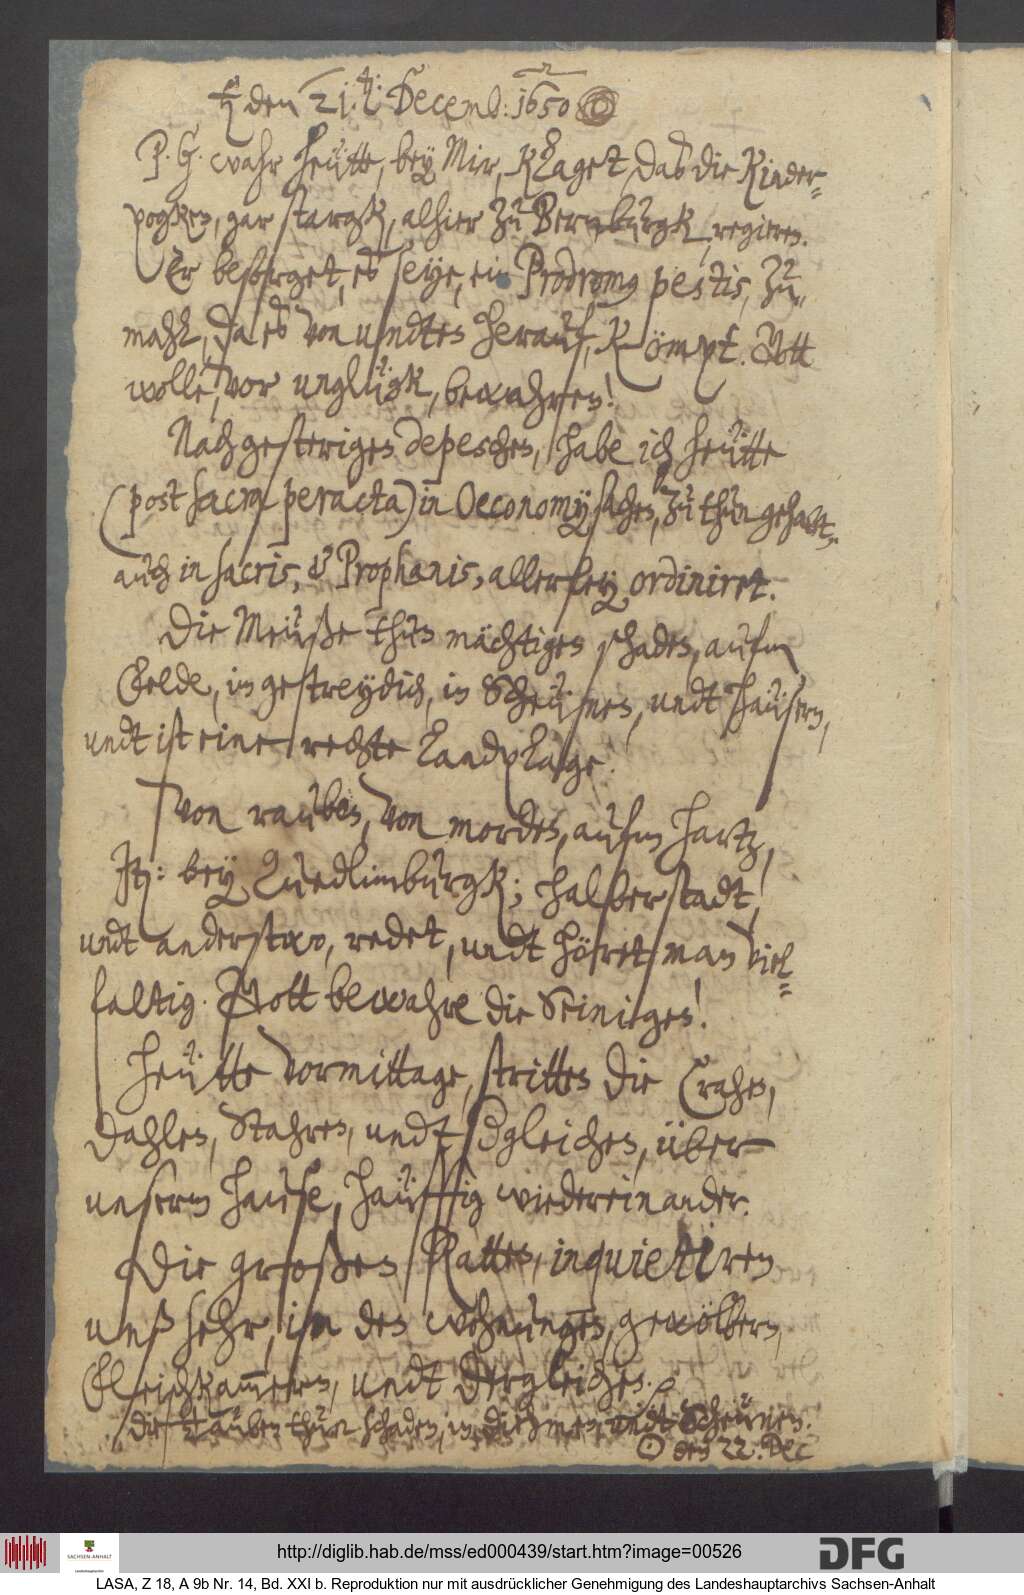 ♄ den 21. t: Decemb: 1650
P. G. wahr heütte, bey Mir, Klaget, daß die Kinder=
pogken, gar stargk, alhier zu Bernburgk, regieren.
Er besorget, es seye, ein Prodromus pestis, zu=
mahl, da es von undten herauf, kömpt. Gott
wolle, vor unglügk, bewahren!
Nach gesterigen depeschen, habe ich heütte
(post sacra peracta) in Oeconomysachen, zu thun gehabt,
auch in sacris, & Prophanis, allerley ordiniret.
Die Meuße thun mächtigen schaden, aufm
Felde, im gestreydich, in Scheunen, undt häusern,
undt ist eine rechte Landplage.
Von rauben, von morden, aufm Hartz,
Jt: bey Quedlimburgk; Halberstadt,
undt anderstwo, redet, undt höret man viel=
faltig. Gott bewahre die Seinigen!
Heütte vormittage, stritten die Crahen,
Dahlen, Stahren, undt dgleichen, über
unserm Hause, häuffig wiedereinander.
Die großen Ratten, inquietiren
unß sehr, in den wohnungen, gewölbern,
Fleischkammern, undt dergleichen.
Die Tauben thun schaden, in diehmen, undt Scheunen.
☉ den 22. Dec
http://diglib.hab.de/mss/ed000439/start.htm?image=00526
SACHSEN-ANHALT
DFG
LASA, Z 18, A 9b Nr. 14, Bd. XXI b. Reproduktion nur mit ausdrücklicher Genehmigung des Landeshauptarchivs Sachsen-Anhalt